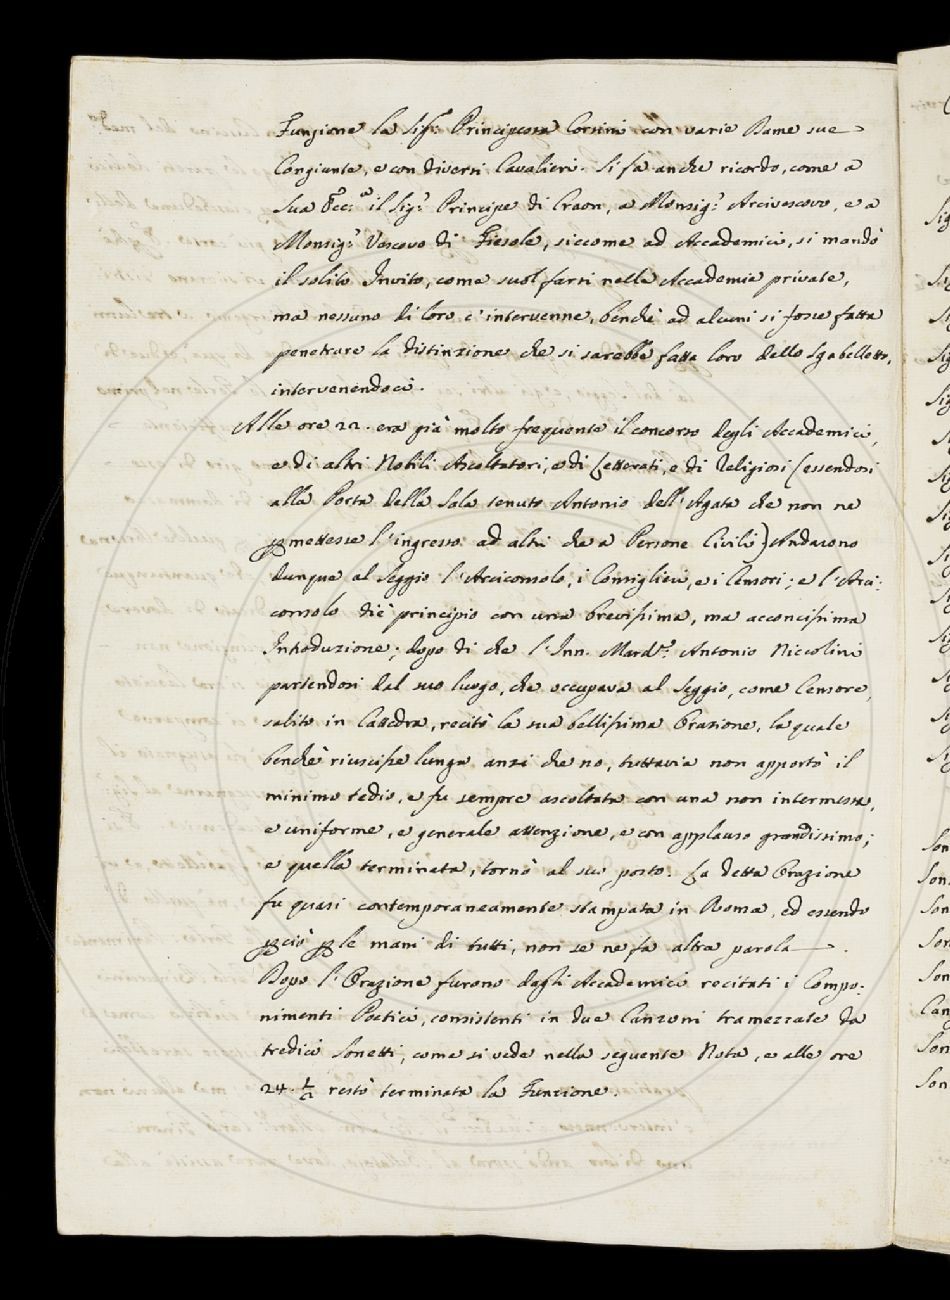 Funzione la Sig.ra Principessa Corsini con varie Dame sue
Congiunte, e con diversi Cavalieri. Si fa anche ricordo, come a
Sua Ecc.a il Sig.r Principe di Craon, a Monsig.r Arcivescovo, e a
Monsig.r Vescovo di Fiesole, siccome ad Accademici, si mandò
il solito Invito, come suol farsi nelle Accademie private,
ma nessuno di loro c'intervenne, benchè ad alcuni si fosse fatta
penetrare la distinzione che si sarebbe fatta loro dello Sgabellotto,
intervenendoci.
Alle ore 22. era già molto frequente il concorso degli Accademici,
e di altri Nobili Ascoltatori, e di Letterati, e di Religiosi (essendosi
alla Porta della Sala tenuto Antonio dell'Agata che non ne
permettesse l'ingresso ad altri che a Persone Civili) Andarono
dunque al Seggio l'Arciconsolo, i Consiglieri, e i Censori; e l'Arci:
consolo diè principio con una brevissima, ma acconcissima
Introduzione; dopo di che l'Inn. March.e Antonio Niccolini
partendosi dal suo luogo, che occupava al Seggio, come Censore,
salito in Cattedra, recitò la sua bellissima Orazione, la quale
benchè riuscisse lunga anzi che no, tuttavia non apportò il
minimo tedio, e fu sempre ascoltata con una non intermessa,
e uniforme, e generale attenzione, e con applauso grandissimo;
e quella terminata, tornò al suo posto. La detta Orazione
fu quasi contemporaneamente stampata in Roma, ed essendo
perciò per le mani di tutti, non se ne fa altra parola.
Dopo l'Orazione furono dagli Accademici recitati i Compo:
nimenti Poetici, consistenti in due Canzoni tramezzate da
tredici Sonetti, come si vede nella seguente Nota, e alle ore
24. 1/2 restò terminata la Funzione.